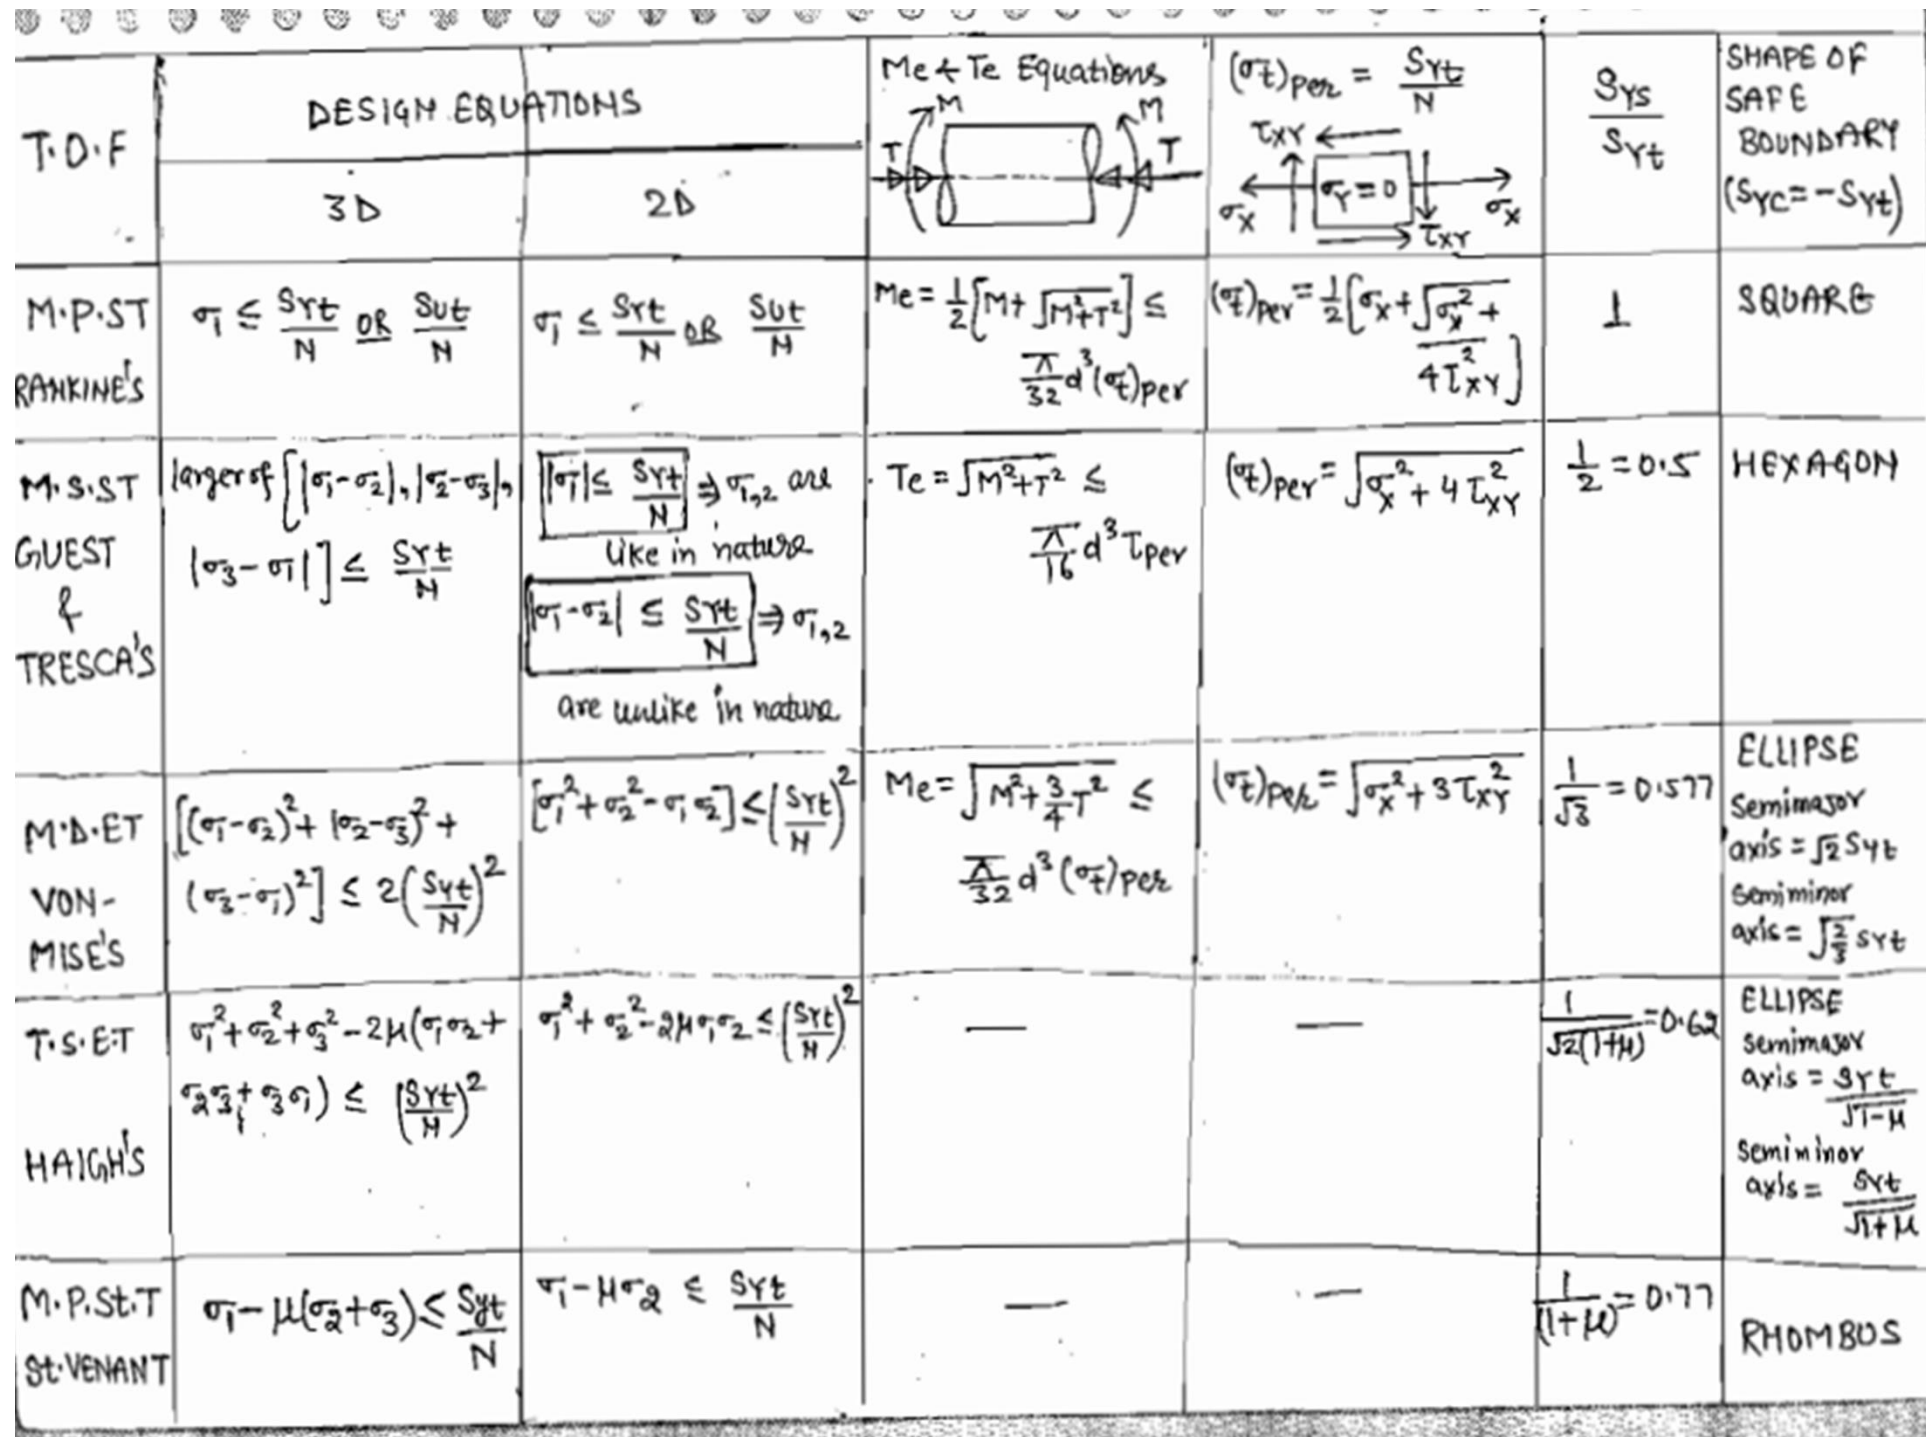 T.O.F
DESIGN EQUATIONS
3D
2D
Me & Te Equations
M
M
T
T
(σt)per = Syt/N
τxy
σy=0
σx
σx
τxy
Sys/Syt
SHAPE OF
SAFE
BOUNDARY
(Syc=-Syt)
M.P.ST
RANKINE'S
σ1 ≤ Syt/N OR Sut/N
σ1 ≤ Syt/N OR Sut/N
Me = 1/2[M+√(M²+T²)] ≤
π/32 d³(σt)per
(σt)per = 1/2[σx+√(σx²+
4τxy²)]
1
SQUARE
M.S.ST
GUEST
&
TRESCA'S
larger of [|σ1-σ2|, |σ2-σ3|,
|σ3-σ1|] ≤ Syt/N
|σ1| ≤ Syt/N ⇒ σ1,2 are
like in nature
|σ1-σ2| ≤ Syt/N ⇒ σ1,2
are unlike in nature
Te = √(M²+T²) ≤
π/16 d³ τper
(σt)per = √(σx²+4τxy²)
1/2 = 0.5
HEXAGON
M.D.ET
VON-
MISE'S
[(σ1-σ2)²+(σ2-σ3)²+
(σ3-σ1)²] ≤ 2(Syt/N)²
[σ1²+σ2²-σ1σ2] ≤ (Syt/N)²
Me = √(M²+3/4T²) ≤
π/32 d³(σt)per
(σt)per = √(σx²+3τxy²)
1/√3 = 0.577
ELLIPSE
Semimajor
axis = √2 Syt
Semiminor
axis = √(2/3) Syt
T.S.E.T
HAIGH'S
σ1²+σ2²+σ3²-2μ(σ1σ2+
σ2σ3+σ3σ1) ≤ (Syt/N)²
σ1²+σ2²-2μσ1σ2 ≤ (Syt/N)²
—
—
1/√2(1+μ) = 0.62
ELLIPSE
Semimajor
axis = Syt/√(1-μ)
Semiminor
axis = Syt/√(1+μ)
M.P.St.T
St.VENANT
σ1-μ(σ2+σ3) ≤ Syt/N
σ1-μσ2 ≤ Syt/N
—
—
1/(1+μ) = 0.77
RHOMBUS